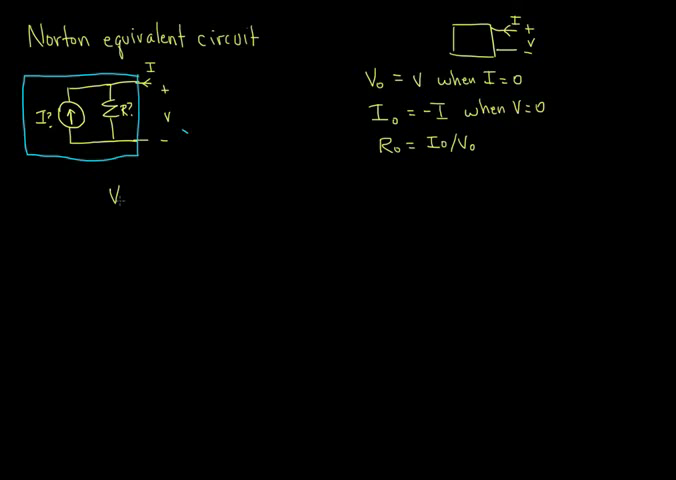 Norton equivalent circuit
I
+
I?
R?
V
-
V
I
+
V
-
V₀ = V when I=0
I₀ = -I when V=0
R₀ = I₀/V₀